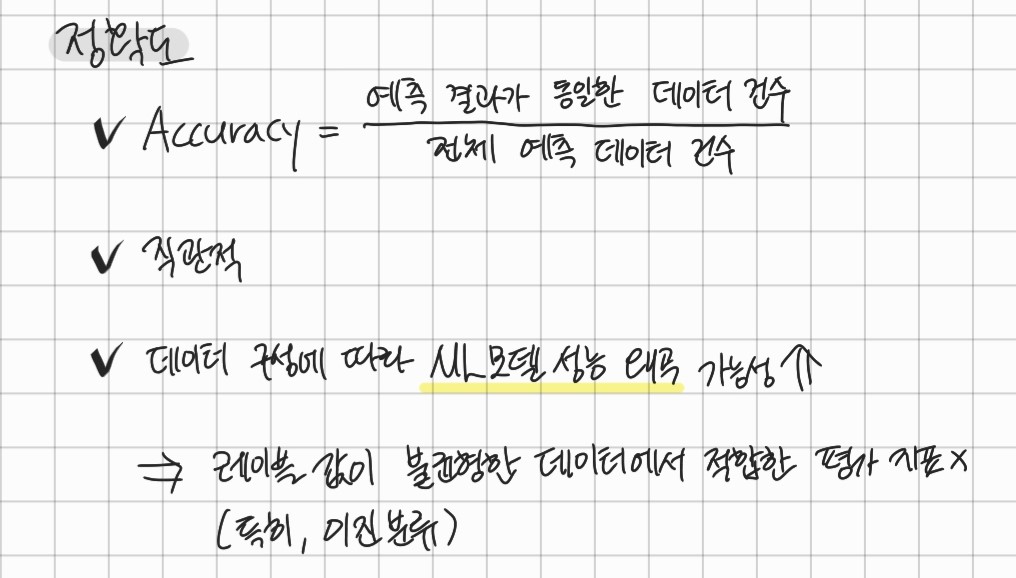 정확도
✓ Accuracy = 예측 결과가 동일한 데이터 건수
전체 예측 데이터 건수
✓ 직관적
✓ 데이터 구성에 따라 ML모델 성능 왜곡 가능성 ⇑
⇒ 레이블 값이 불균형한 데이터에서 적합한 평가 지표 x
(특히, 이진분류)